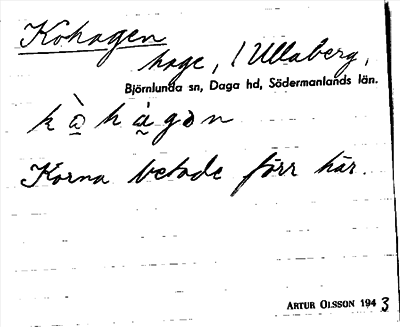 Kohagen
hage, / Ullaberg,
Björnlunda sn, Daga hd, Södermanlands län.
kò̱hà̱gən
Korna betade förr här.
ARTUR OLSSON 1943